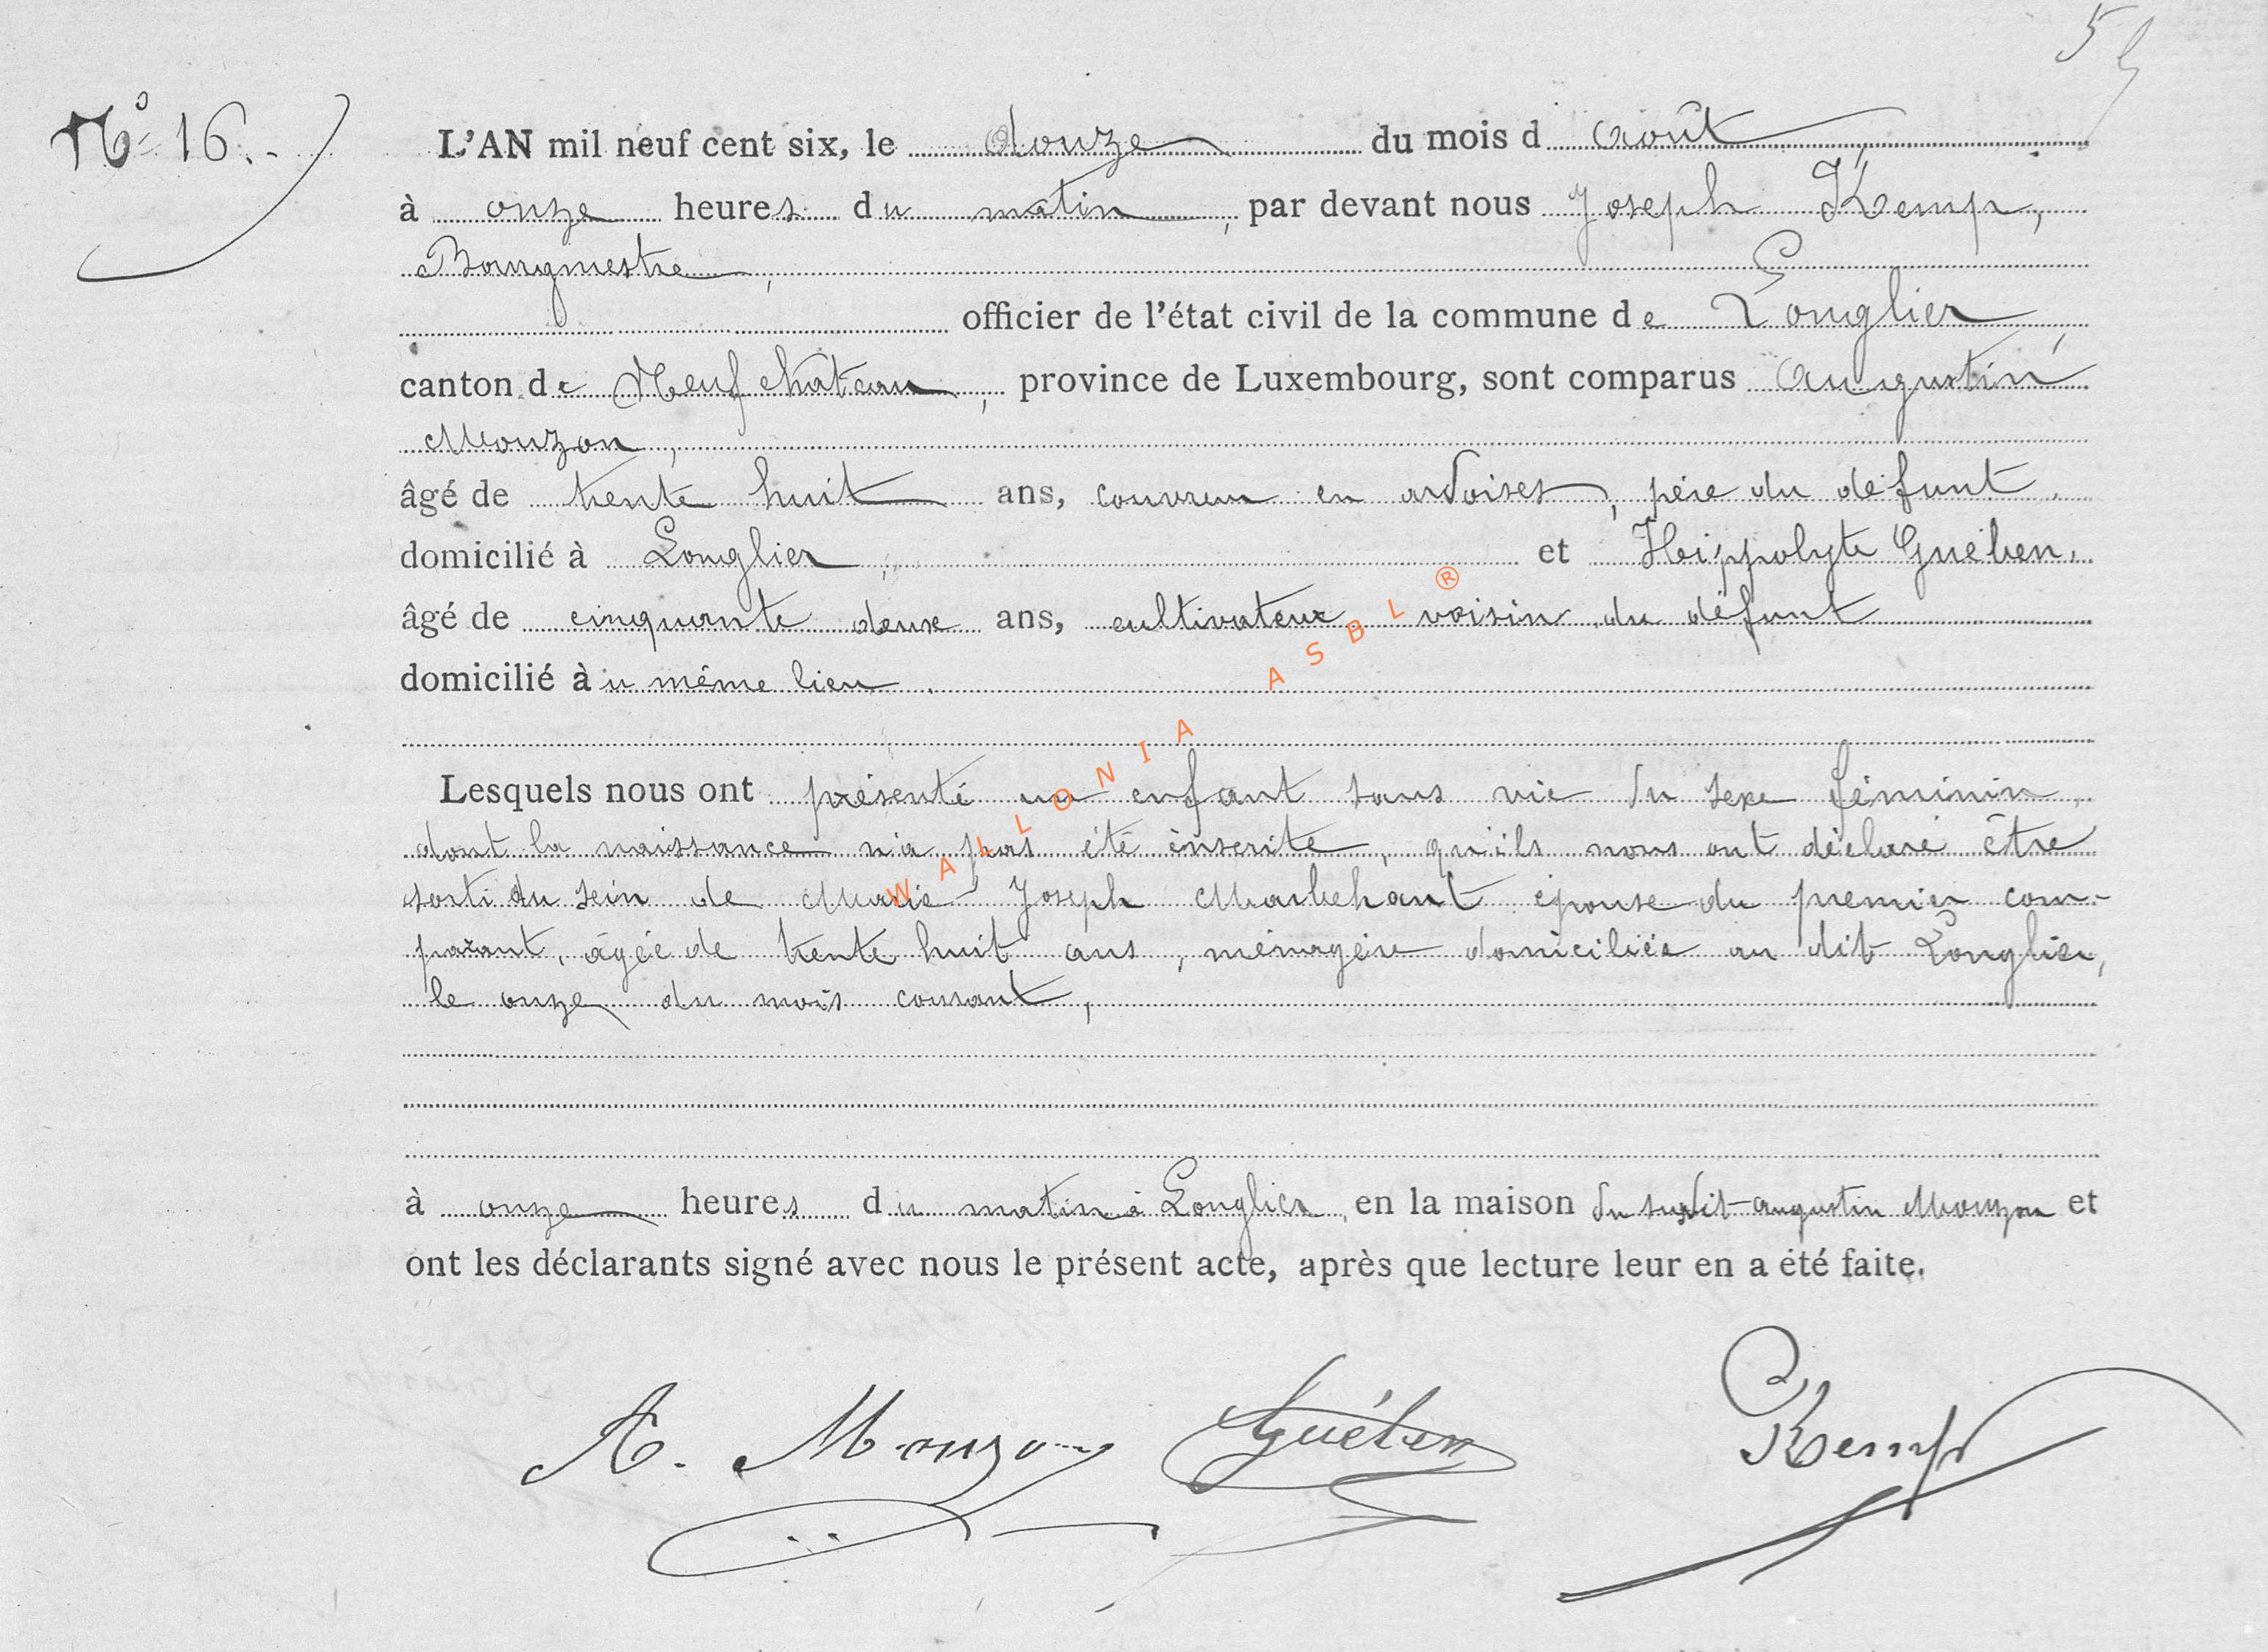 55
N° 16.
L'AN mil neuf cent six, le douze du mois d août
à onze heures du matin, par devant nous Joseph Kemp,
Bourgmestre,
officier de l'état civil de la commune de Longlier,
canton de Neufchâteau, province de Luxembourg, sont comparus Augustin
Mouzon,
âgé de trente huit ans, couvreur en ardoises, père du défunt,
domicilié à Longlier, et Hippolyte Guében,
âgé de cinquante deux ans, cultivateur voisin du défunt
domicilié àu même lieu.
Lesquels nous ont présenté un enfant sans vie du sexe féminin,
dont la naissance n'a pas été inscrite, qu'ils nous ont déclaré être
sorti du sein de Marie Joseph Marbehant épouse du premier com-
parant, âgée de trente huit ans, ménagère domiciliée au dit Longlier,
le onze du mois courant,
à onze heures du matin à Longlier, en la maison du susdit Augustin Mouzon et
ont les déclarants signé avec nous le présent acte, après que lecture leur en a été faite.
A. Mouzon Guében Kemp
WALLONIA ASBL ®